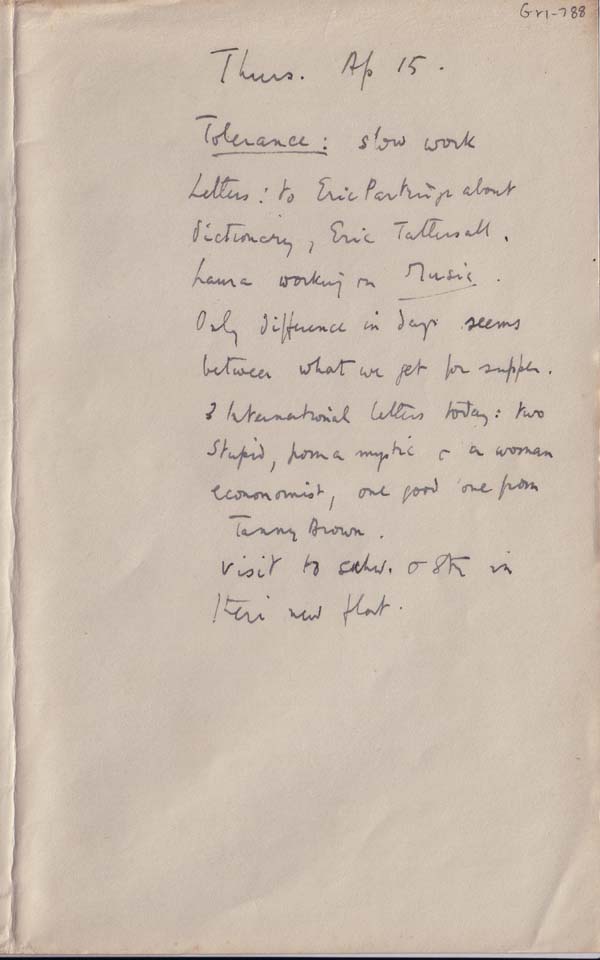 Gr1-788
Thurs. Ap 15.
Tolerance: slow work
Letters: to Eric Partridge about
dictionary, Eric Tattersall.
Laura working on Music.
Only difference in days seems
between what we get for supper.
3 International letters today: two
stupid, from a mystic & a woman
economist, one good one from
Tanny Brown.
visit to & in
their new flat.